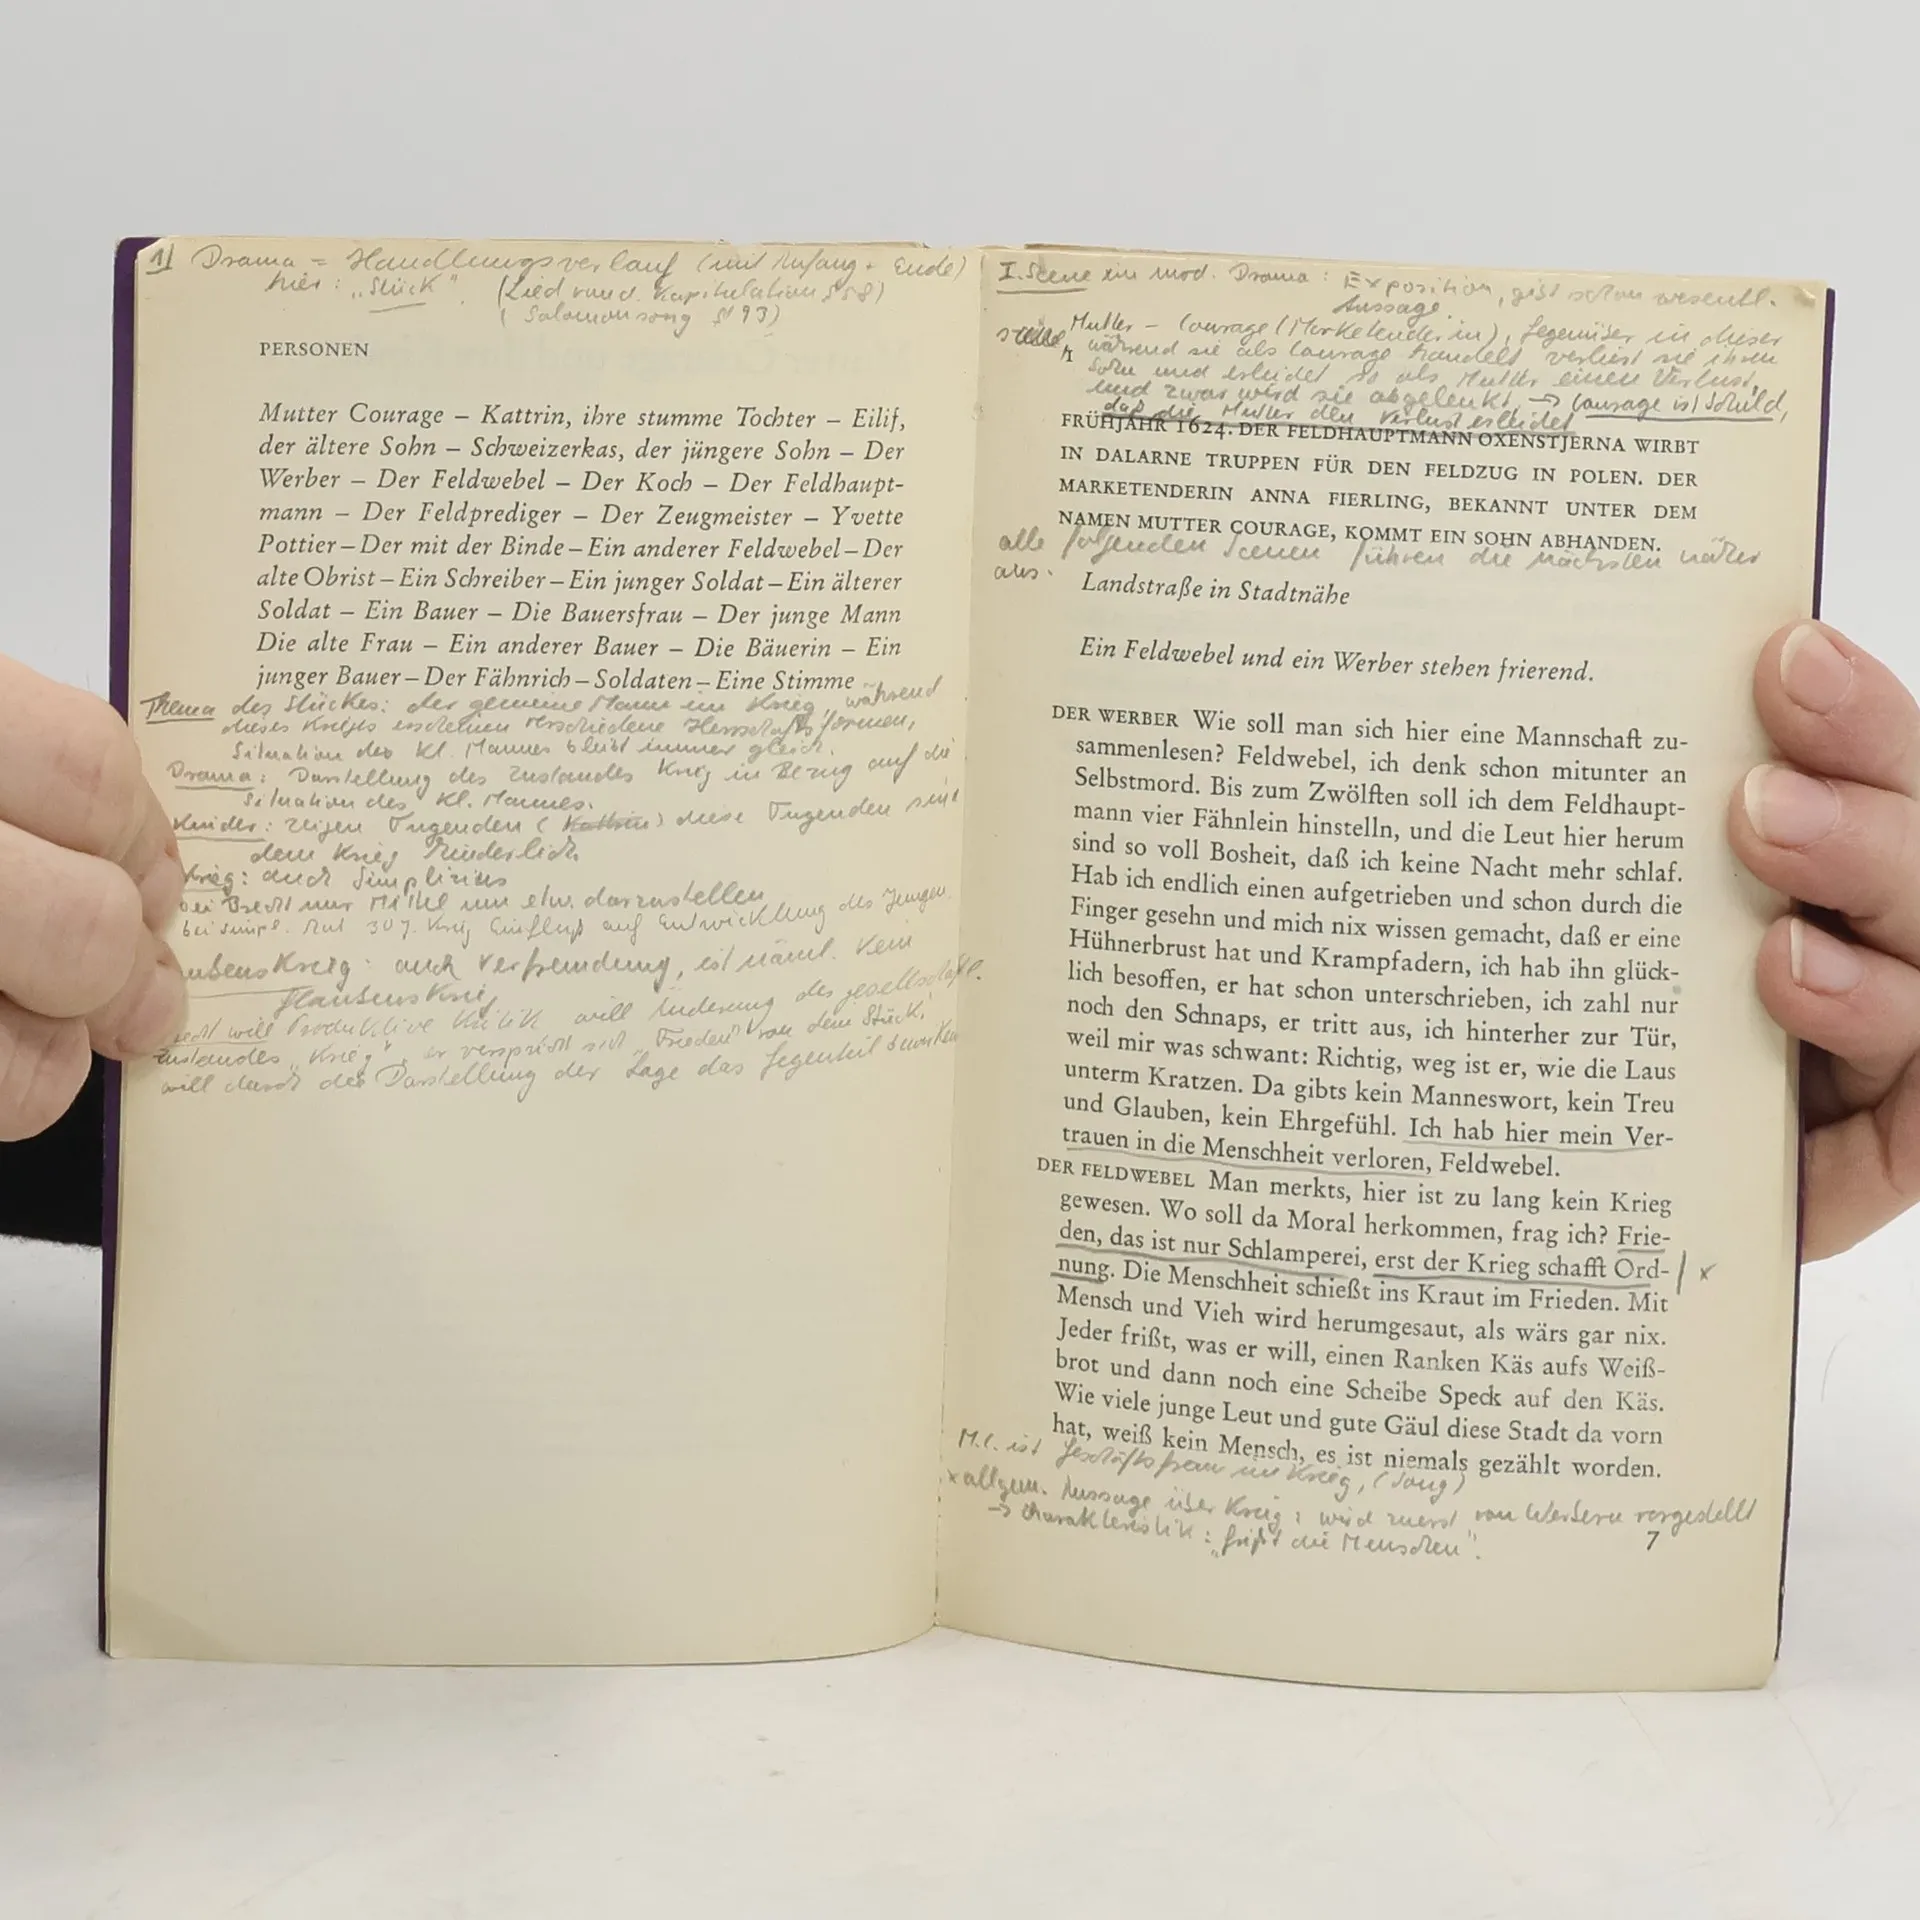 1) Drama = Handlungsverlauf (mit Anfang + Ende)
hier: „Stück" (Lied von d. Kapitulation S 58)
(Salomonsong S 93)
PERSONEN
Mutter Courage – Kattrin, ihre stumme Tochter – Eilif,
der ältere Sohn – Schweizerkas, der jüngere Sohn – Der
Werber – Der Feldwebel – Der Koch – Der Feldhaupt-
mann – Der Feldprediger – Der Zeugmeister – Yvette
Pottier – Der mit der Binde – Ein anderer Feldwebel – Der
alte Obrist – Ein Schreiber – Ein junger Soldat – Ein älterer
Soldat – Ein Bauer – Die Bauersfrau – Der junge Mann
Die alte Frau – Ein anderer Bauer – Die Bäuerin – Ein
junger Bauer – Der Fähnrich – Soldaten – Eine Stimme
Thema des Stückes: der gemeine Mann im Krieg, während
dieses Krieges erscheinen verschiedene Herrschaftsformen,
Situation des kl. Mannes bleibt immer gleich.
Drama: Darstellung des Zustandes Krieg in Bezug auf die
Situation des kl. Mannes.
Kinder: zeigen Tugenden (Kattrin) diese Tugenden sind
dem Krieg hinderlich.
Krieg: auch Simplizius
bei Brecht nur Mittel um etw. darzustellen
bei Simpl. hat 30 j. Krieg Einfluß auf Entwicklung des Jungen
aubenskrieg: auch Verfremdung, ist näml. kein
Glaubenskrieg
recht will Produktive Kritik will Änderung des gesellschaftl.
Zustandes „Krieg", er verspricht sich „Frieden" von dem Stück,
will durch die Darstellung der Lage das Gegenteil bewirken
I. Scene im mod. Drama: Exposition, gibt schon wesentl.
Aussage
Mutter – Courage (Marketenderin), Gegenüber in dieser
Scene, während sie als Courage handelt verliert sie ihren
Sohn und erleidet so als Mutter einen Verlust,
und zwar wird sie abgelenkt → Courage ist Schuld,
daß die Mutter den Verlust erleidet
FRÜHJAHR 1624. DER FELDHAUPTMANN OXENSTJERNA WIRBT
IN DALARNE TRUPPEN FÜR DEN FELDZUG IN POLEN. DER
MARKETENDERIN ANNA FIERLING, BEKANNT UNTER DEM
NAMEN MUTTER COURAGE, KOMMT EIN SOHN ABHANDEN.
alle folgenden Scenen führen die nächsten näher
aus.
Landstraße in Stadtnähe
Ein Feldwebel und ein Werber stehen frierend.
DER WERBER Wie soll man sich hier eine Mannschaft zu-
sammenlesen? Feldwebel, ich denk schon mitunter an
Selbstmord. Bis zum Zwölften soll ich dem Feldhaupt-
mann vier Fähnlein hinstelln, und die Leut hier herum
sind so voll Bosheit, daß ich keine Nacht mehr schlaf.
Hab ich endlich einen aufgetrieben und schon durch die
Finger gesehn und mich nix wissen gemacht, daß er eine
Hühnerbrust hat und Krampfadern, ich hab ihn glück-
lich besoffen, er hat schon unterschrieben, ich zahl nur
noch den Schnaps, er tritt aus, ich hinterher zur Tür,
weil mir was schwant: Richtig, weg ist er, wie die Laus
unterm Kratzen. Da gibts kein Manneswort, kein Treu
und Glauben, kein Ehrgefühl. Ich hab hier mein Ver-
trauen in die Menschheit verloren, Feldwebel.
DER FELDWEBEL Man merkts, hier ist zu lang kein Krieg
gewesen. Wo soll da Moral herkommen, frag ich? Frie-
den, das ist nur Schlamperei, erst der Krieg schafft Ord-
nung. Die Menschheit schießt ins Kraut im Frieden. Mit
Mensch und Vieh wird herumgesaut, als wärs gar nix.
Jeder frißt, was er will, einen Ranken Käs aufs Weiß-
brot und dann noch eine Scheibe Speck auf den Käs.
Wie viele junge Leut und gute Gäul diese Stadt da vorn
hat, weiß kein Mensch, es ist niemals gezählt worden.
M.C. ist Geschäftsfrau im Krieg, (Song)
x allgem. Aussage über Krieg: wird zuerst von Werbern vorgestellt
→ Charakteristik: „frißt die Menschen".
7